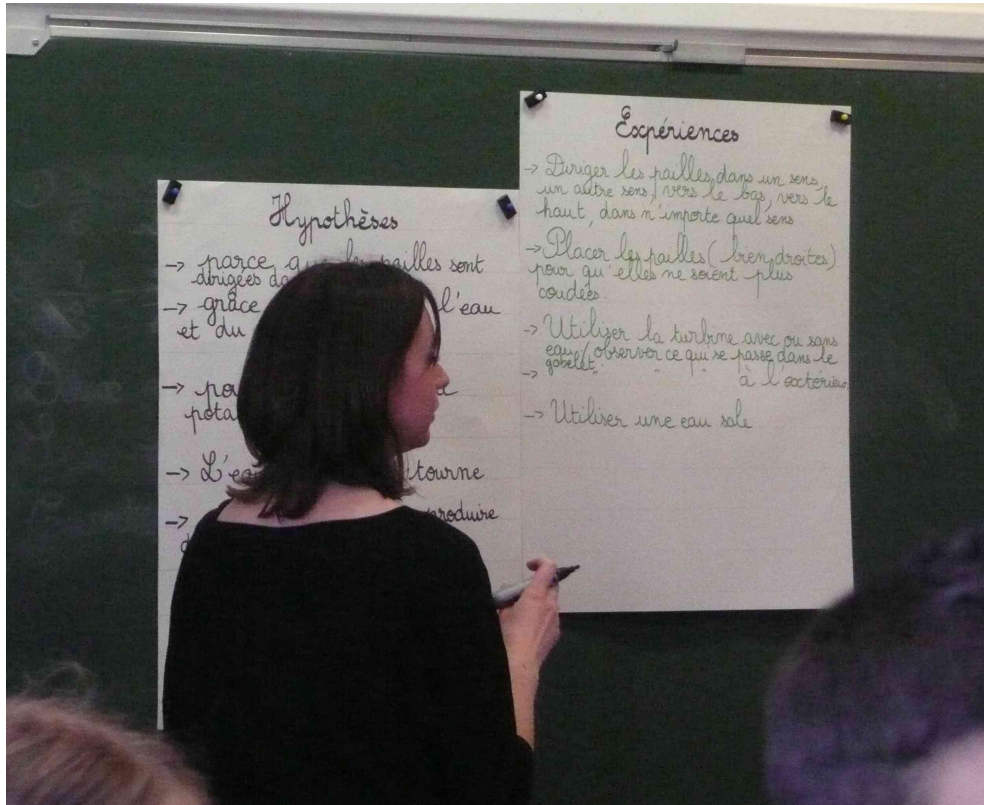 Hypothèses
→ parce que les pailles sont
dirigées
→ grâce l'eau
et du
→
→ L'eau tourne
→ produire
Expériences
→ Diriger les pailles, dans un sens,
un autre sens, vers le bas, vers le
haut, dans n'importe quel sens
→ Placer les pailles (bien droites)
pour qu'elles ne soient plus
coudées.
→ Utiliser la turbine avec ou sans
eau (observer ce qui se passe dans le
gobelet.
→ " " " à l'extérieur
→ Utiliser une eau sale